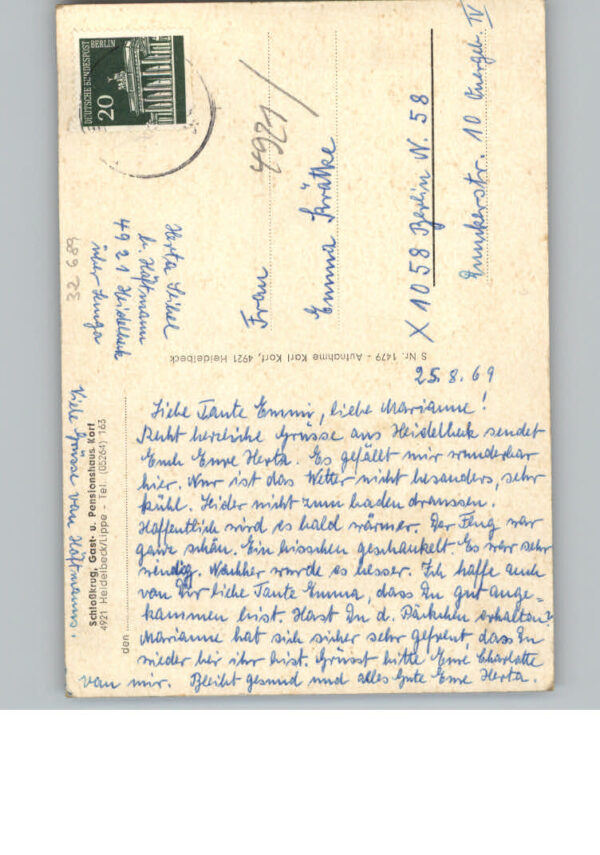 25.8.69
Liebe Tante Emmi, liebe Marianne!
Recht herzliche Grüsse aus Heidelbeck sendet
Euch Eure Herta. Es gefällt mir wunderbar
hier. Nur ist das Wetter nicht besonders, sehr
kühl. Leider nicht zum baden draussen.
Hoffentlich wird es bald wärmer. Der Flug war
ganz schön. Ein bisschen geschaukelt. Es war sehr
windig. Nachher wurde es besser. Ich hoffe auch
von Dir liebe Tante Emma, dass Du gut ange-
kommen bist. Hast Du d. Päckchen erhalten?
Marianne hat sich sicher sehr gefreut, dass Du
wieder bei ihr bist. Grüsst bitte Eure Charlotte
von mir. Bleibt gesund und alles Gute Eure Herta.
Viele Grüsse von Höftmanns.
Schloßkrug, Gast- u. Pensionshaus Korf
4921 Heidelbeck/Lippe - Tel. (05264) 163
den
S Nr. 1479 - Aufnahme Karl Korf, 4921 Heidelbeck
Herta
b. Höftmann
4921 Heidelbeck
über Lemgo
32 689
DEUTSCHE BUNDESPOST
BERLIN
20
4921/
Frau
Emma Krätke
X 1058 Berlin N. 58
10 Quergeb. IV